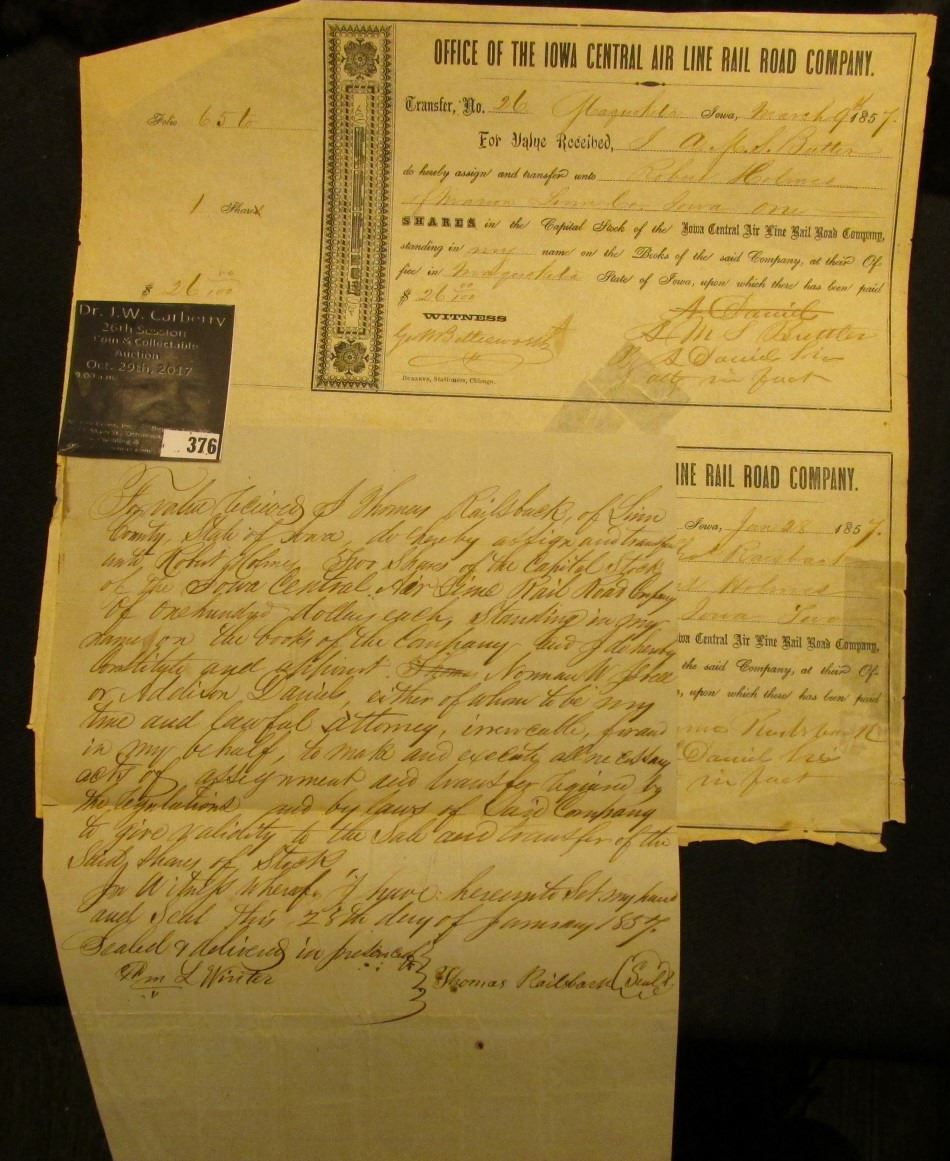 OFFICE OF THE IOWA CENTRAL AIR LINE RAIL ROAD COMPANY.
Folio 656
Transfer, No. 26 Maquoketa Iowa, March 9th 1857.
For Value Received, I A. M. S. Butler
do hereby assign and transfer unto Robert Holmes
1 Share
Marion Linn Co. Iowa one
SHARES in the Capital Stock of the Iowa Central Air Line Rail Road Company,
standing in my name on the Books of the said Company, at their Of-
fice in Maquoketa State of Iowa, upon which there has been paid
$ 26 00/100
$ 26 00/100
A Daniel
WITNESS
Butler
G. W. Butterworth
A Daniel
att in fact
Stationers, Chicago.
Dr. J.W. Carberry
26th Session
Coin & Collectable
Auction
Oct. 29th, 2017
9:00 a.m.
376
INE RAIL ROAD COMPANY.
Iowa, Jan 28 1857.
Holmes
Iowa Two
wa Central Air Line Rail Road Company,
the said Company, at their Of-
, upon which there has been paid
Daniel
in fact
For value received I Thomas Railsback, of Linn
County, State of Iowa, do hereby assign and transfer
unto Robert Holmes Two Shares of the Capital Stock
of the Iowa Central Air Line Rail Road Company
of one hundred dollars each, standing in my
name on the books of the Company and I do hereby
Constitute and appoint Norman W Isbell
or Addison Daniels, either of whom to be my
true and lawful Attorney, irrevocable, for and
in my behalf, to make and execute all necessary
acts of assignment and transfer required by
the regulations and by laws of said Company
to give validity to the Sale and transfer of the
Said Shares of Stock
In Witness whereof, I have hereunto Set my hand
and Seal this 28th day of January 1857.
Sealed & delivered in presence of
Wm L Winter
Thomas Railsback (Seal)